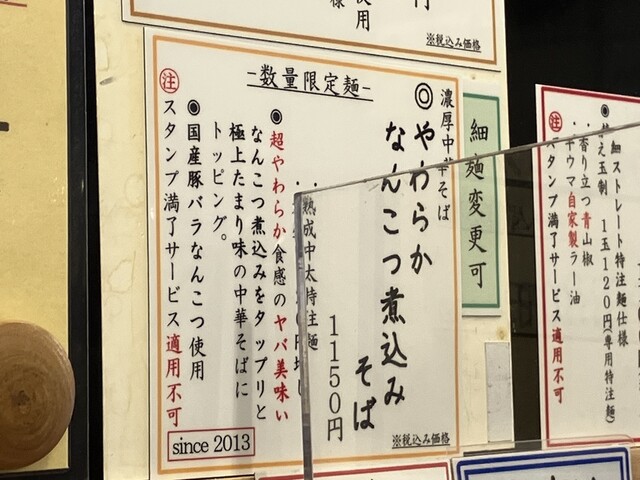 使用
※税込み価格
-数量限定麺-
濃厚中華そば
◎やわらか
なんこつ煮込み
そば
1150円
熟成中太特注麺
◉超やわらか食感のヤバ美味い
なんこつ煮込みをタップリと
極上たまり味の中華そばに
トッピング。
◉国産豚バラなんこつ使用
㊟スタンプ満了サービス適用不可
since 2013
※税込み価格
細麺変更可
細ストレート特注麺仕様
替え玉制 1玉120円(専用特注麺)
・香り立つ青山椒
・辛ウマ自家製ラー油
㊟スタンプ満了サービス適用不可